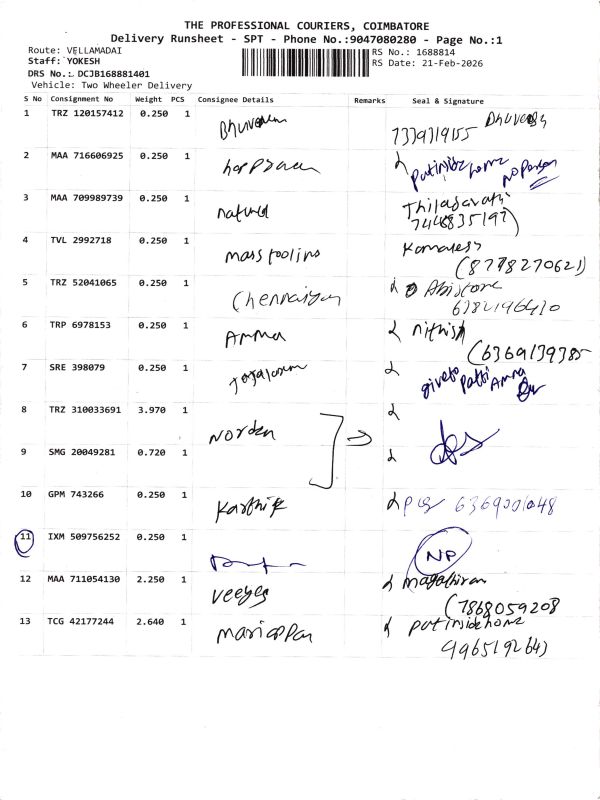 THE PROFESSIONAL COURIERS, COIMBATORE
Delivery Runsheet - SPT - Phone No.:9047080280 - Page No.:1
Route: VELLAMADAI
RS No.: 1688814
Staff: YOKESH
RS Date: 21-Feb-2026
DRS No.: DCJB168881401
Vehicle: Two Wheeler Delivery
S No Consignment No Weight PCS Consignee Details Remarks Seal & Signature
1 TRZ 120157412 0.250 1
2 MAA 716606925 0.250 1 putinside home no person
3 MAA 709989739 0.250 1 natural
4 TVL 2992718 0.250 1 mass tooling
(8778270621)
5 TRZ 52041065 0.250 1
6 TRP 6978153 0.250 1 Amma nithish
(6369139385
7 SRE 398079 0.250 1 giveto patti Amma
8 TRZ 310033691 3.970 1 Norden
9 SMG 20049281 0.720 1
10 GPM 743266 0.250 1 Karthik
11 IXM 509756252 0.250 1 NP
12 MAA 711054130 2.250 1 Veeyes
(7868059208
13 TCG 42177244 2.640 1 mariappan putinside home